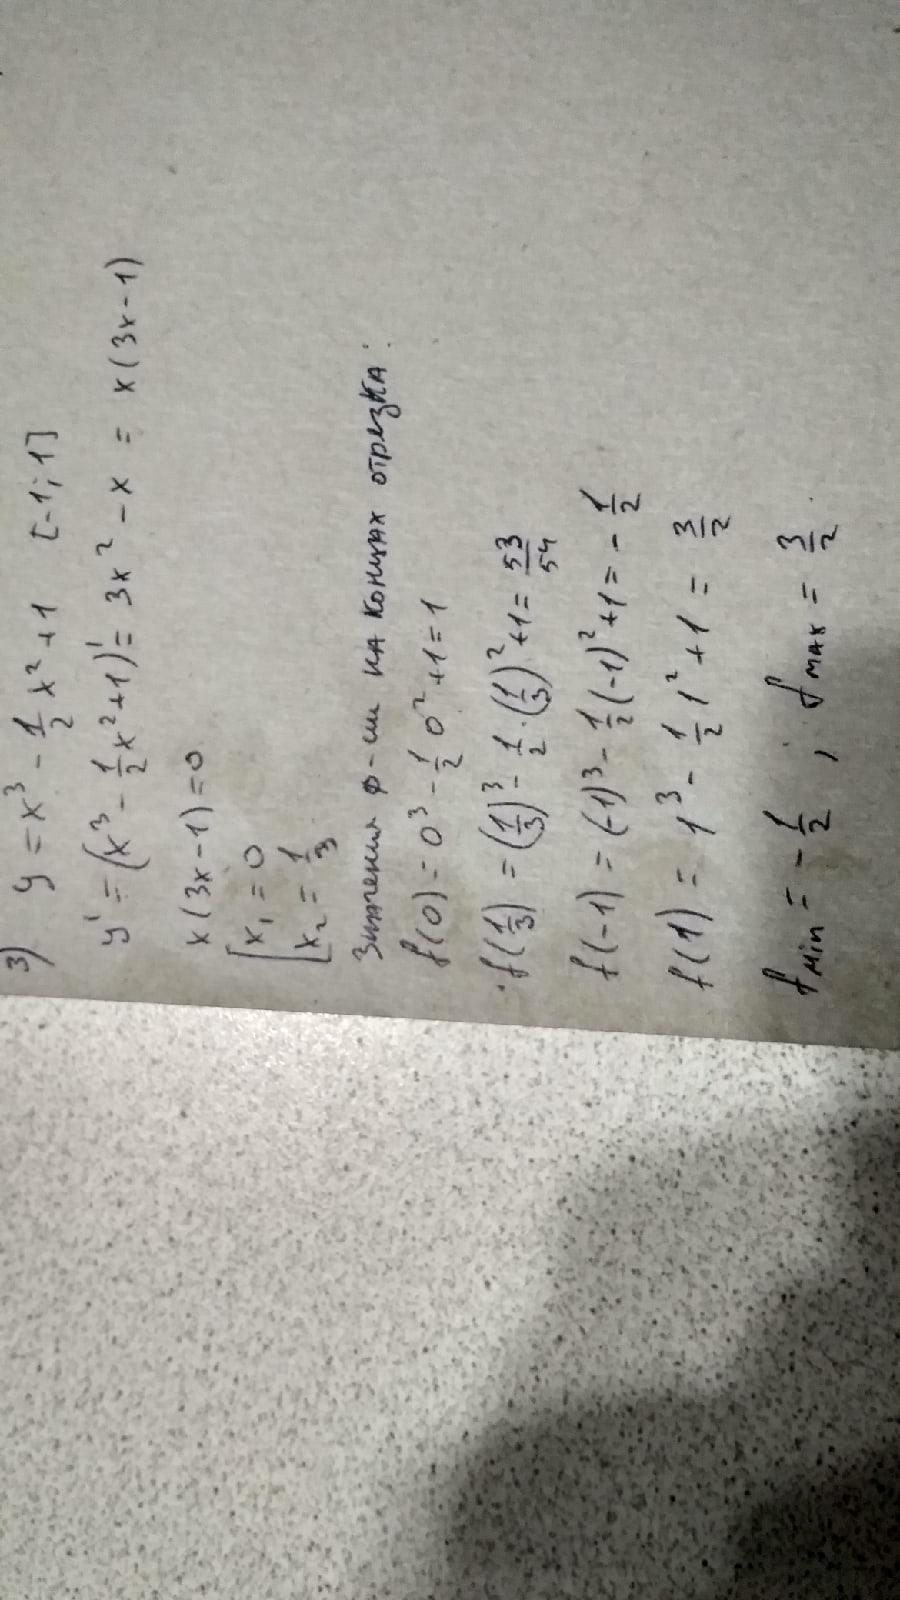 3) y = x³ - 1/2 x² + 1 [-1; 1]
y' = (x³ - 1/2 x² + 1)' = 3x² - x = x(3x - 1)
x(3x - 1) = 0
[ x₁ = 0
x₂ = 1/3
Значения ф-ии на концах отрезка:
f(0) = 0³ - 1/2 0² + 1 = 1
f(1/3) = (1/3)³ - 1/2 · (1/3)² + 1 = 53/54
f(-1) = (-1)³ - 1/2 (-1)² + 1 = - 1/2
f(1) = 1³ - 1/2 1² + 1 = 3/2
f min = - 1/2 ; f max = 3/2.